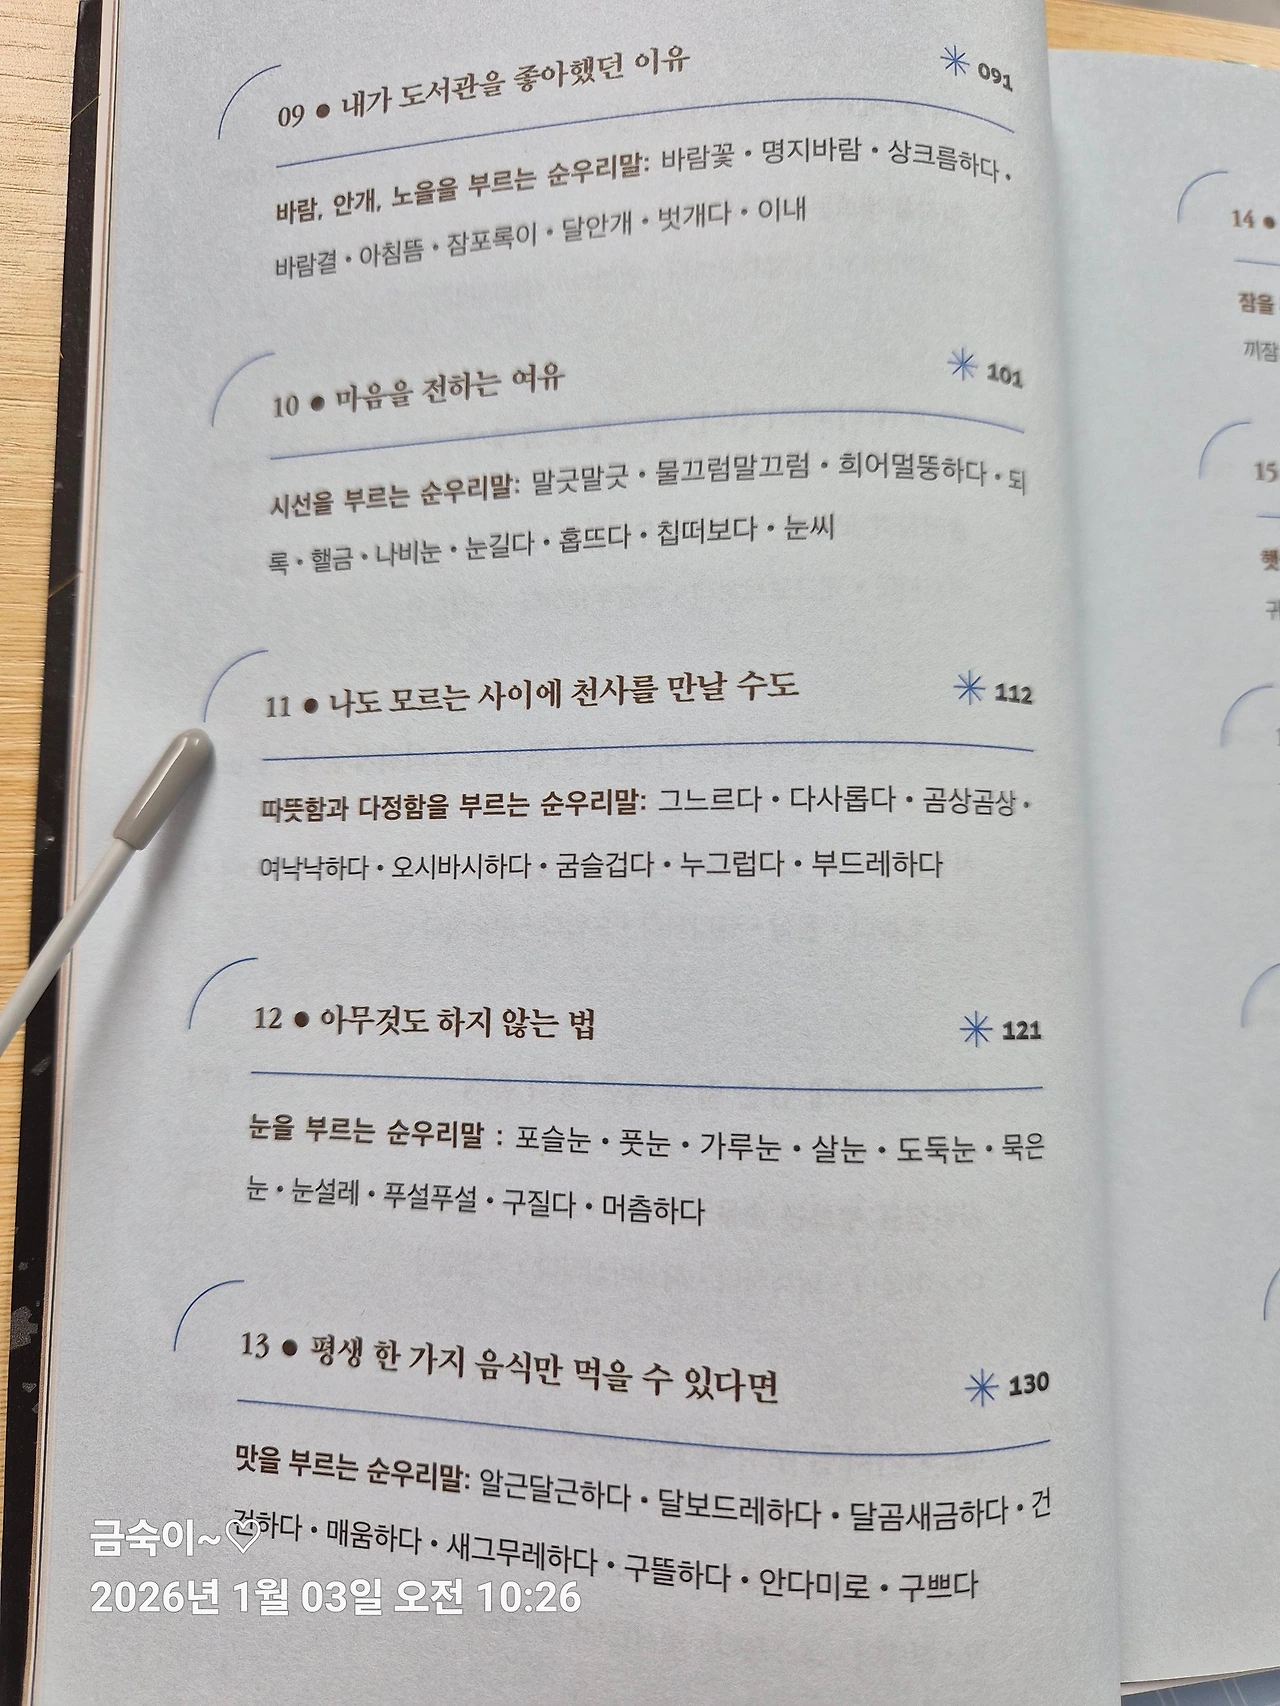 09 ● 내가 도서관을 좋아했던 이유 091
바람, 안개, 노을을 부르는 순우리말: 바람꽃 • 명지바람 • 상크름하다 •
바람결 • 아침뜸 • 잠포록이 • 달안개 • 벗개다 • 이내
10 ● 마음을 전하는 여유 101
시선을 부르는 순우리말: 말긋말긋 • 물끄럼말끄럼 • 희어멀뚱하다 • 되
록 • 핼금 • 나비눈 • 눈길다 • 홉뜨다 • 칩떠보다 • 눈씨
11 ● 나도 모르는 사이에 천사를 만날 수도 112
따뜻함과 다정함을 부르는 순우리말: 그느르다 • 다사롭다 • 곰상곰상 •
여낙낙하다 • 오시바시하다 • 굼슬겁다 • 누그럽다 • 부드레하다
12 ● 아무것도 하지 않는 법 121
눈을 부르는 순우리말 : 포슬눈 • 풋눈 • 가루눈 • 살눈 • 도둑눈 • 묵은
눈 • 눈설레 • 푸설푸설 • 구질다 • 머츰하다
13 ● 평생 한 가지 음식만 먹을 수 있다면 130
맛을 부르는 순우리말: 알근달근하다 • 달보드레하다 • 달곰새금하다 • 건
건하다 • 매움하다 • 새그무레하다 • 구뜰하다 • 안다미로 • 구쁘다
14 ●
잠을
끼잠
15
햇
귀
금숙이~♡
2026년 1월 03일 오전 10:26